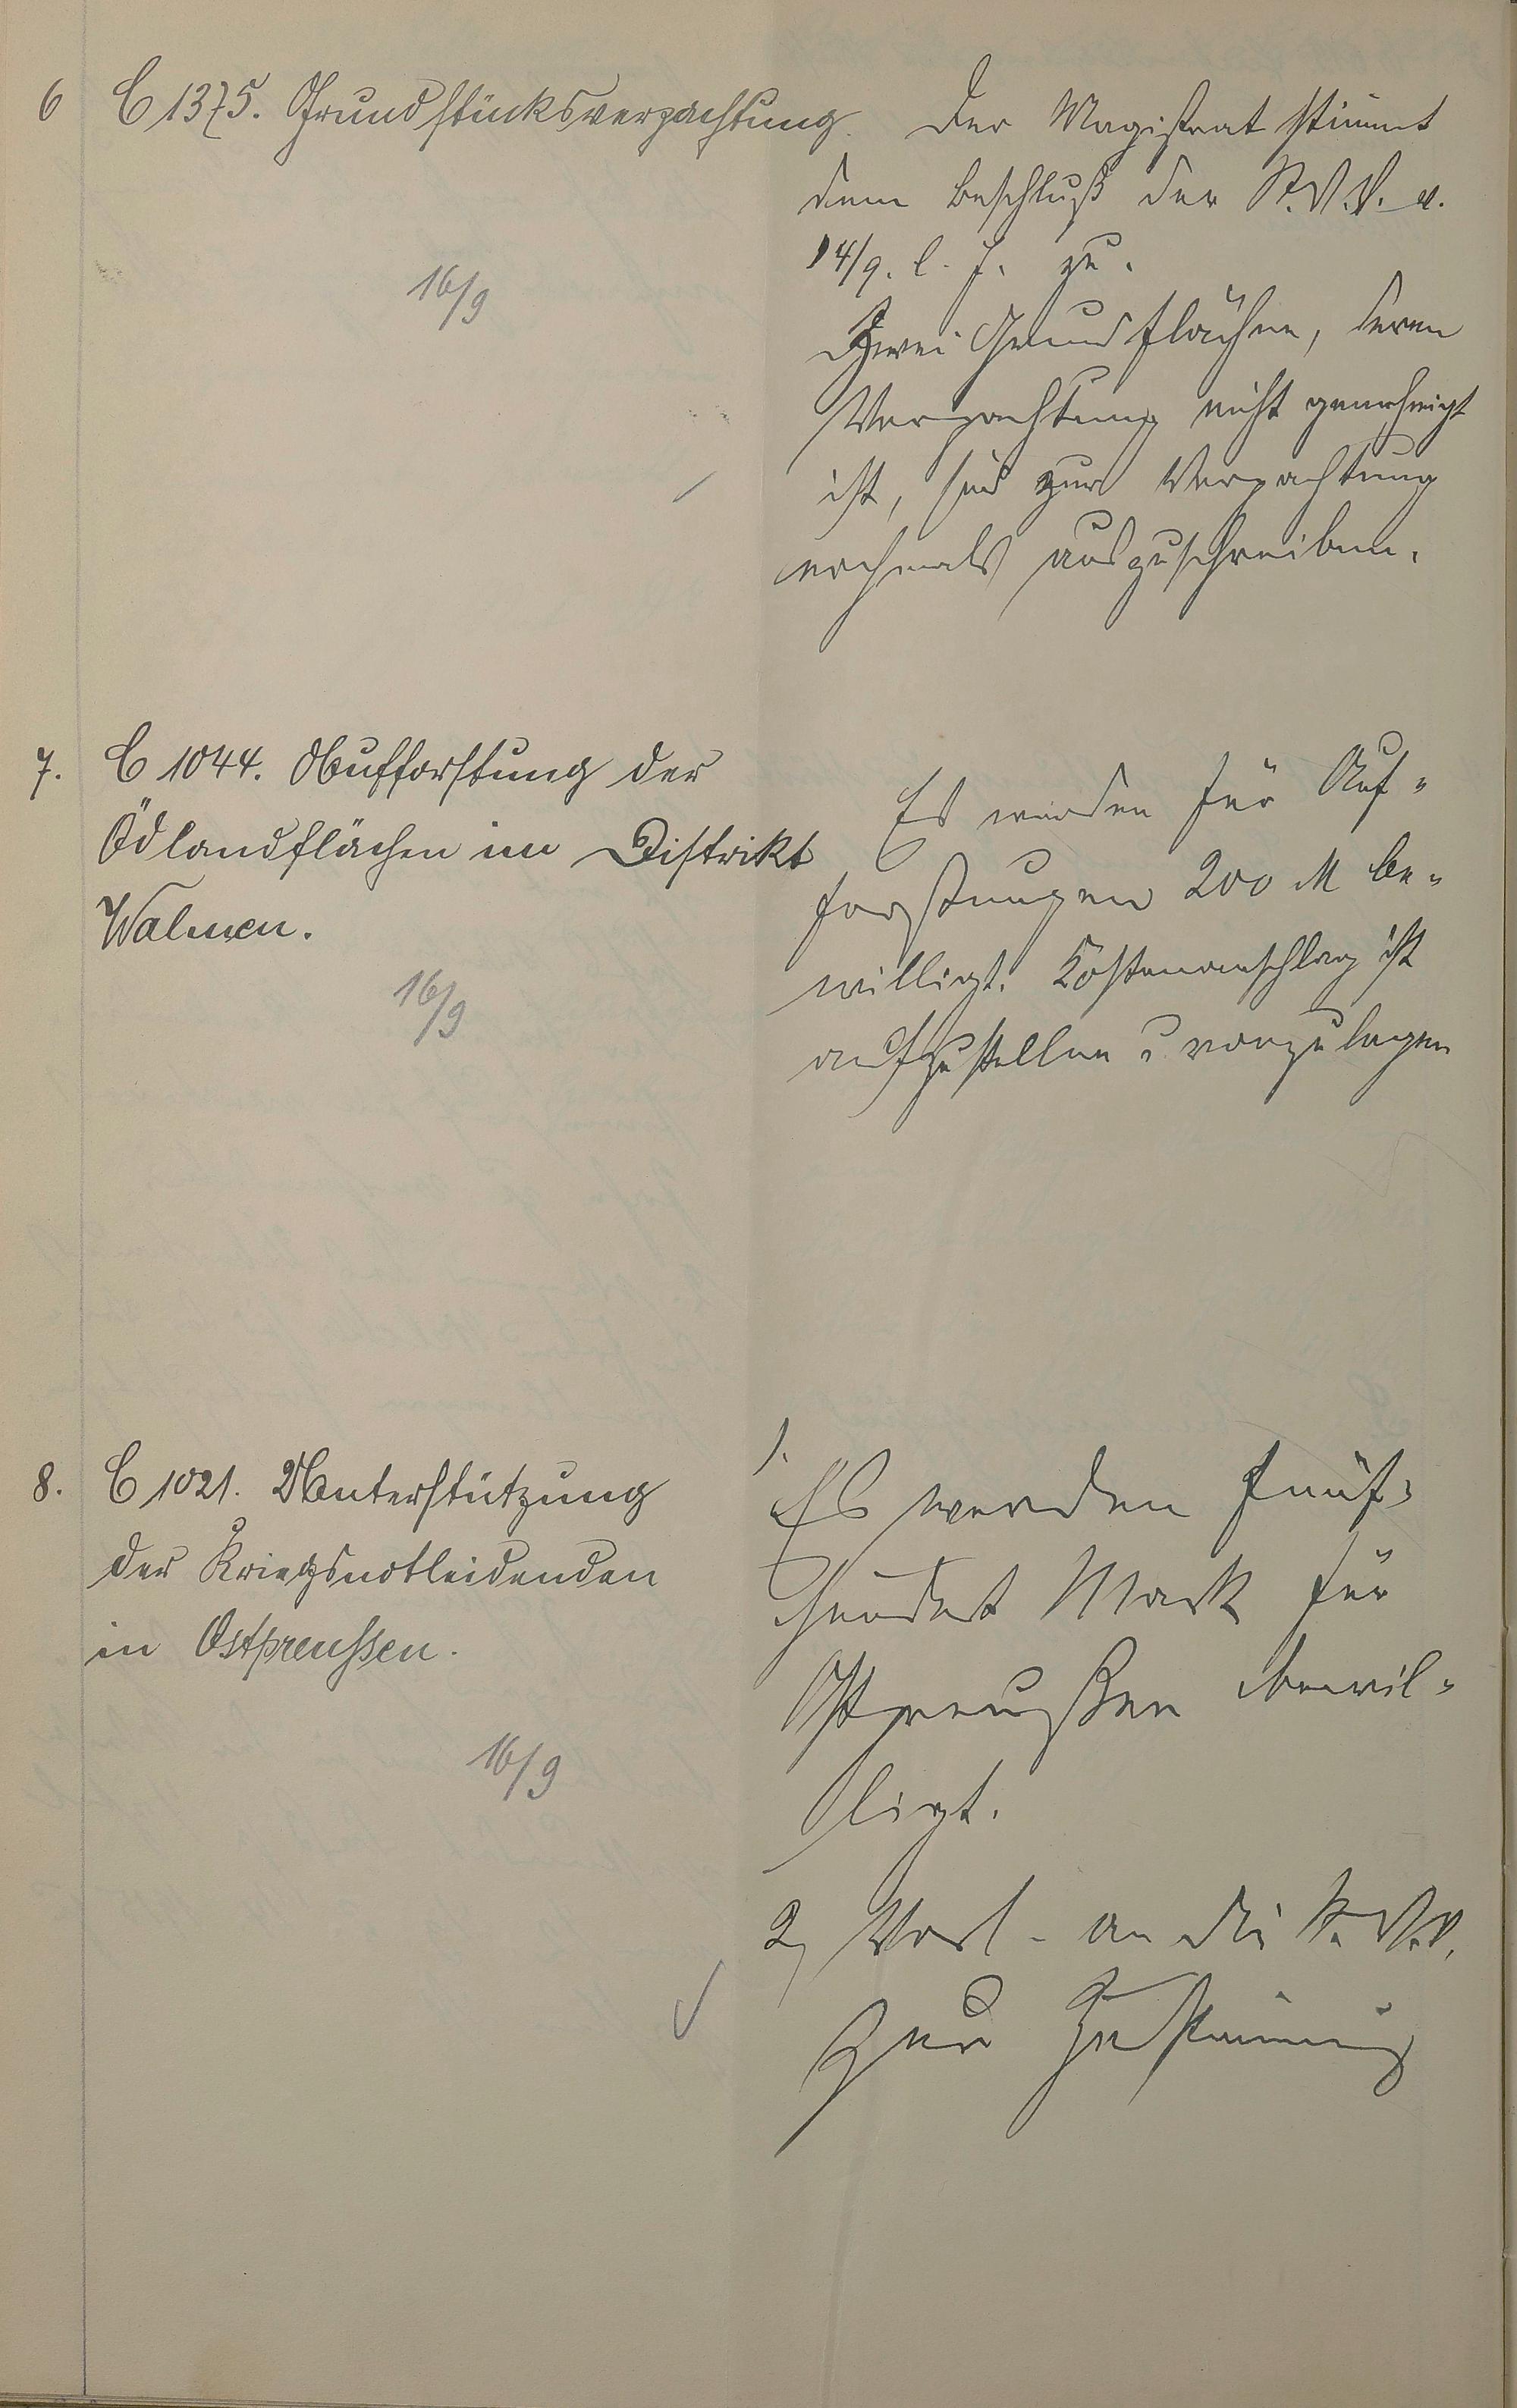 6 C 1375. Grundstücksverpachtung.
16/9
Der Magistrat stimmt
dem Beschluß der St.V.V. v.
14/9. l. J. zu.
Zwei Grundflächen, deren
Verpachtung nicht genehmigt
ist, sind zur Verpachtung
nochmals auszuschreiben.
7. C 1044. Aufforstung der
Ödlandflächen im Distrikt
Walmen.
16/9
Es werden für Auf-
forstungen 200 M be-
willigt. Kostenanschlag ist
aufzustellen u. vorzulegen
8. C 1021. Unterstützung
der Kriegsnotleidenden
in Ostpreussen.
16/9
1.
Es werden Fünf-
hundert Mark für
Ostpreußen bewil-
ligt.
2, Vorl. an die St.V.V.
zur Zustimmung